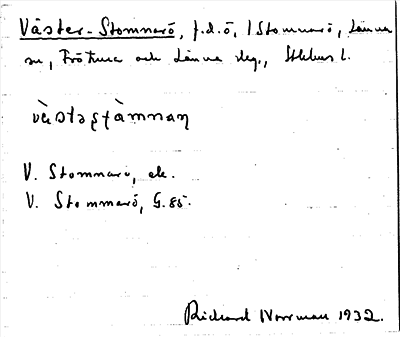 Väster-Stomnarö, f.d. ö, i Stomnarö, Länna
sn, Frötuna och Länna skg., Sthlms l.
V. Stomnarö, ek.
V. Stommarö, G. 85.
Richard Norrman 1932.